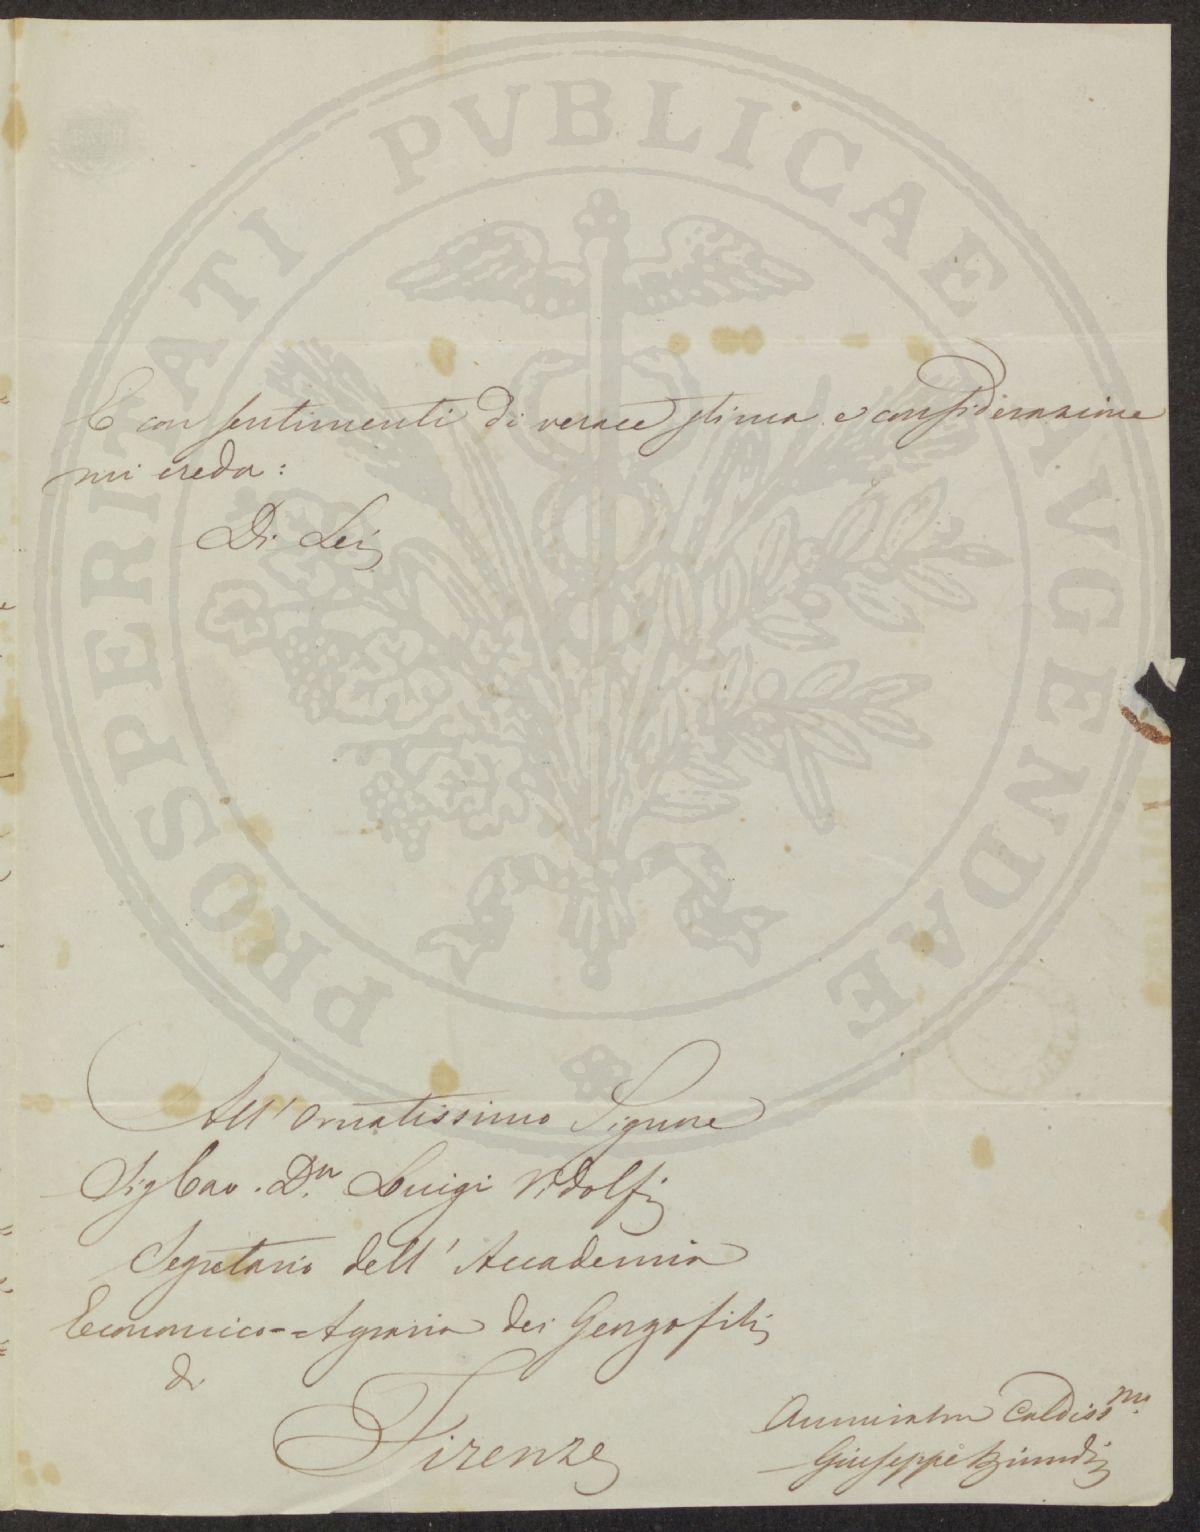 PROSPERITATI PVBLICAE AVGENDAE
E con sentimenti di verace stima e considerazione
mi creda:
Di Lei
All' Ornatissimo Signore
Sig Cav. Dn. Luigi Ridolfi
Segretario dell' Accademia
Economico=Agraria dei Gergofili
di
Firenze
Ammirator Caldissmo.
Giuseppe Biundi